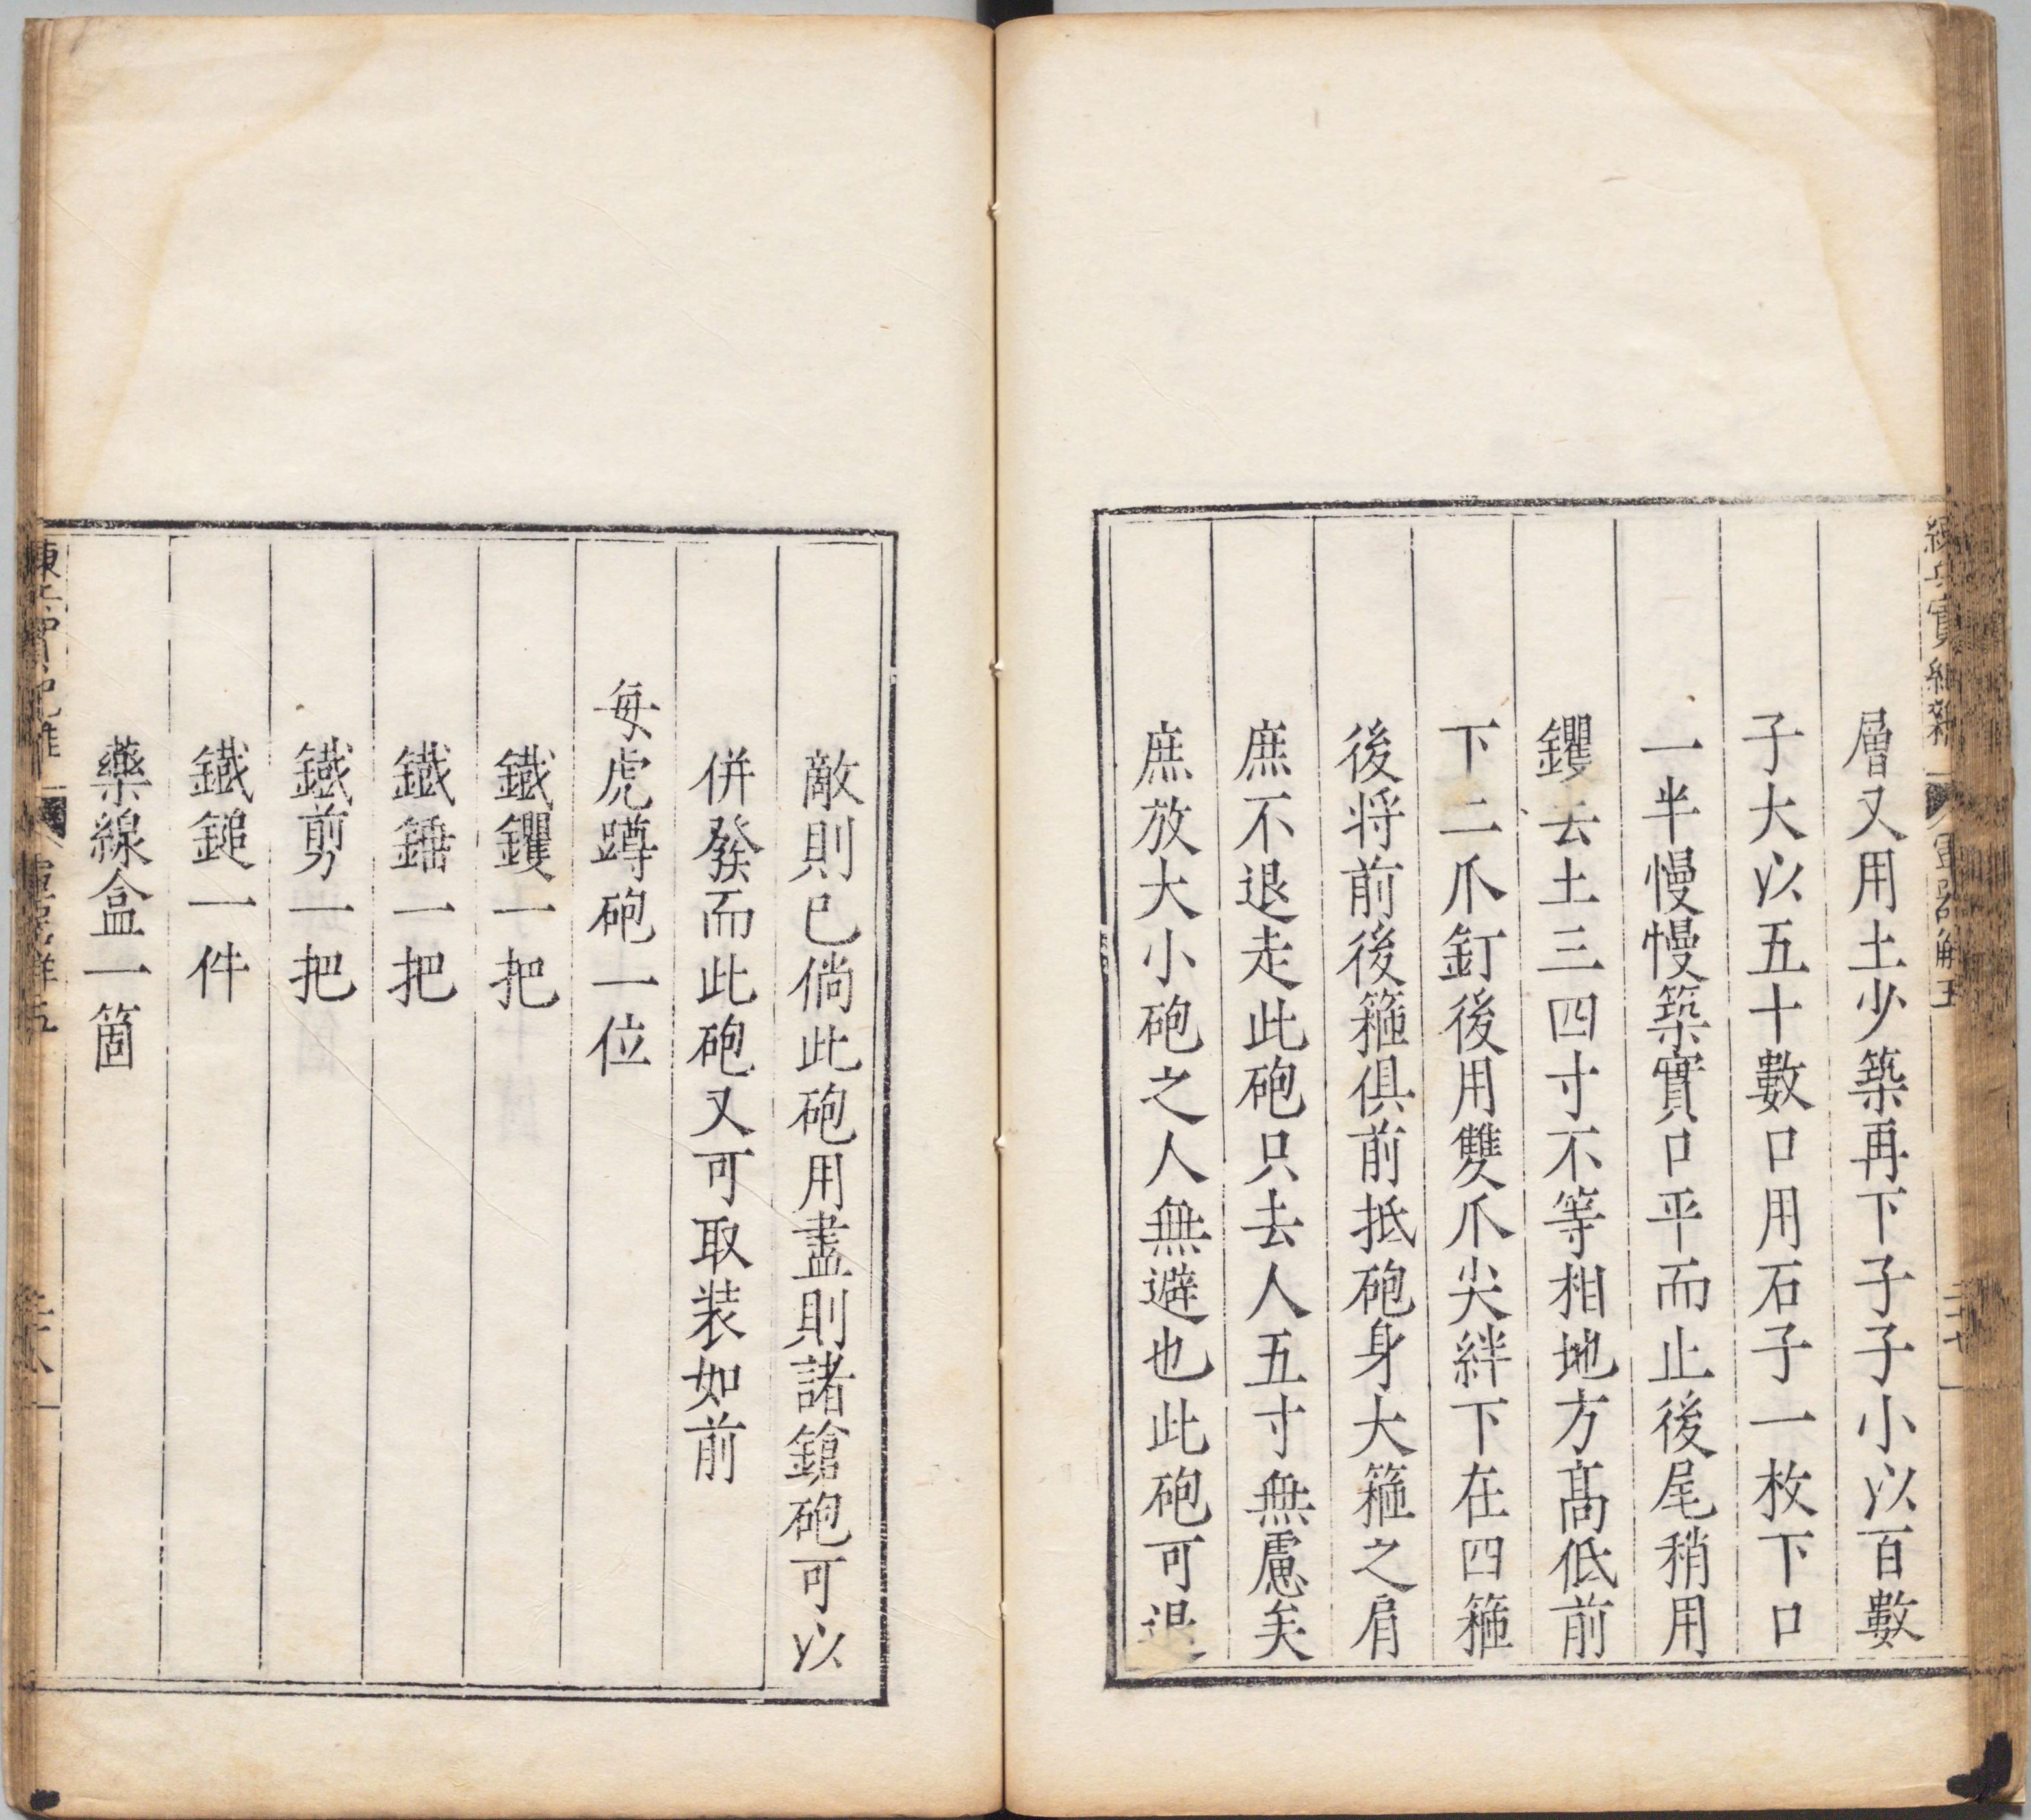 層又用土少築再下子子小以百數
子大以五十數口用石子一枚下口
一半慢慢築實口平而止後尾稍用
钁去土三四寸不等相地方髙低前
下二爪釘後用雙爪尖絆下在四箍
後将前後箍俱前抵砲身大箍之肩
庶不退走此砲只去人五寸無慮矣
庶放大小砲之人無避也此砲可退
敵則已倘此砲用盡則諸鎗砲可以
併發而此砲又可取装如前
每虎蹲砲一位
鐵钁一把
鐵錘一把
鐵剪一把
鐵鎚一件
藥線盒一箇